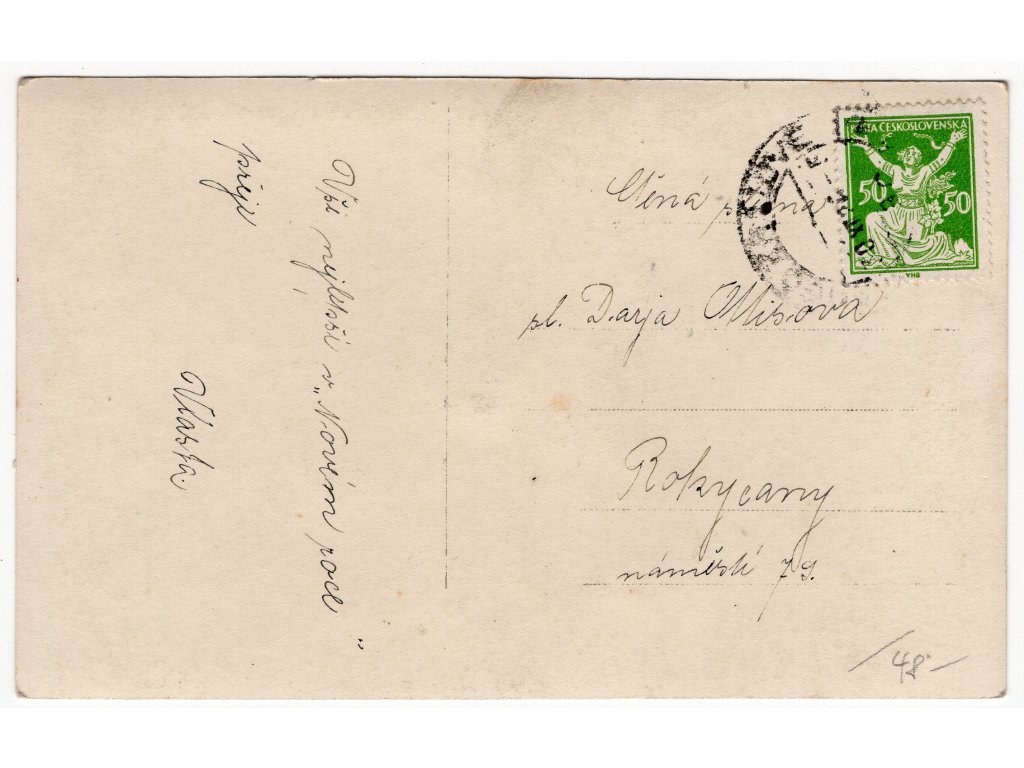 Vše nejlepší v „Novém roce“
přeje
Vlasta.
POŠTA ČESKOSLOVENSKA
50 50
VHB
Ctěná slečna
sl. Darja Ottisova
Rokycany
náměstí 79.
/48-